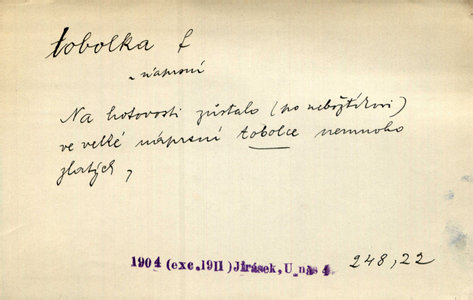 tobolka f
„ náprsní
Na hotovosti zůstalo (po nebožtíkovi)
ve velké náprsní tobolce nemnoho
zlatých,
1904 (exc.1911) Jirásek, U nás 4 248,22